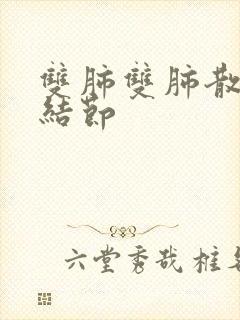 雙肺雙肺散
結節
六堂秀哉楷